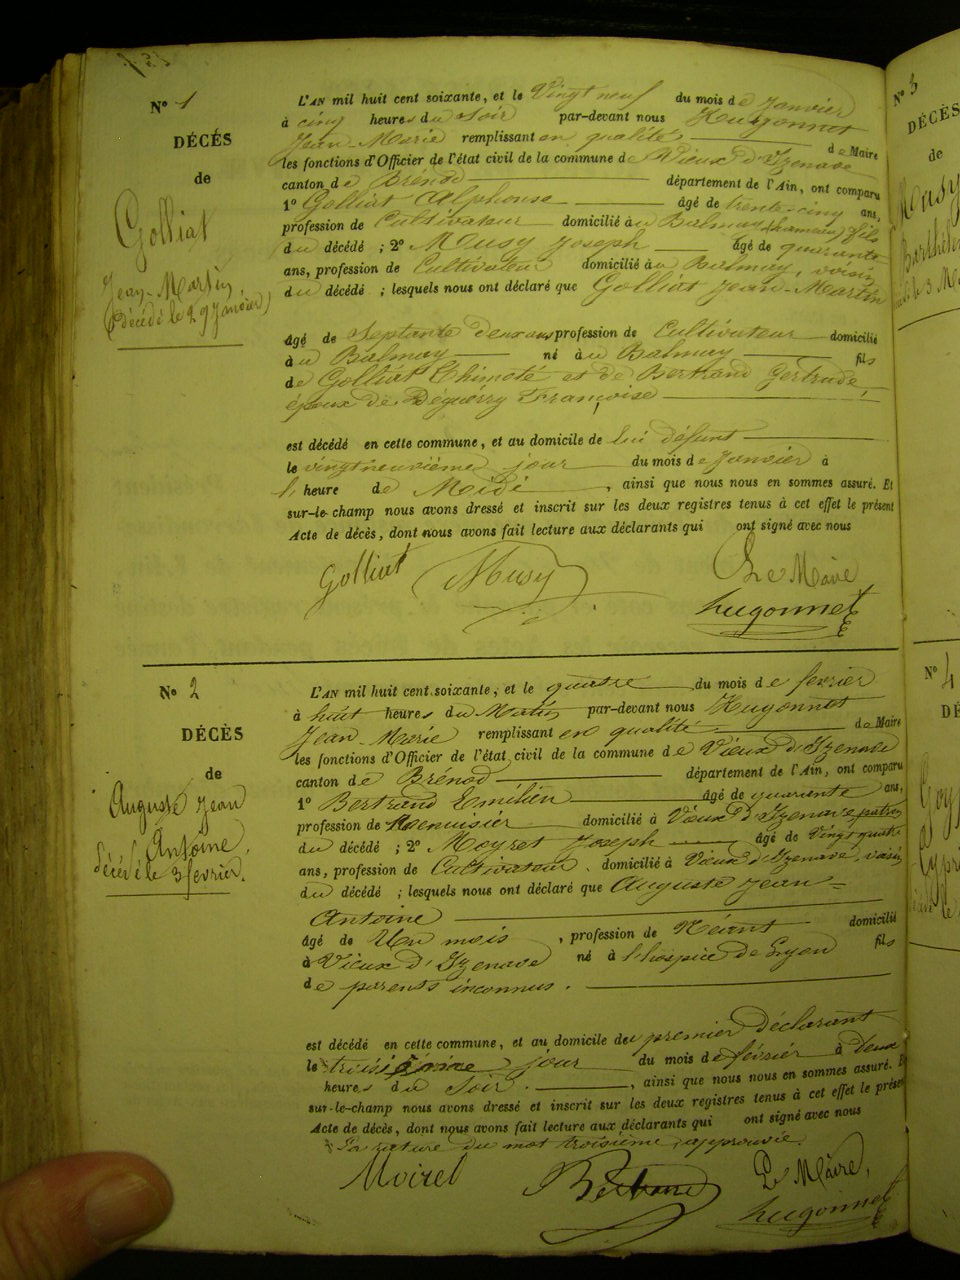 N° 1
DÉCÉS
de
Golliat
Jean-Martin
(décédé le 29 Janvier)
L'AN mil huit cent soixante, et le Vingt neuf du mois de Janvier
à cinq heures du soir par-devant nous Hugonnet
Jean-Marie remplissant en qualité de Maire
les fonctions d'Officier de l'état civil de la commune de Vieux d'Izenave
canton de Brénod département de l'Ain, ont comparu
1° Golliat Alphonse âgé de trente-cinq ans,
profession de Cultivateur domicilié au Balmay hameau, fils
du décédé ; 2° Musy Joseph âgé de quarante
ans, profession de Cultivateur domicilié au Balmay, voisin
du décédé ; lesquels nous ont déclaré que Golliat Jean-Martin
âgé de Septante deux ans profession de Cultivateur domicilié
au Balmay né au Balmay fils
de Golliat Thimoté et de Bertrand Gertrude,
époux de Déguerry Françoise
est décédé en cette commune, et au domicile de lui défunt
le vingtneuvième jour du mois de Janvier à
l'heure de Midi, ainsi que nous nous en sommes assuré. Et
sur-le-champ nous avons dressé et inscrit sur les deux registres tenus à cet effet le présent
Acte de décès, dont nous avons fait lecture aux déclarants qui ont signé avec nous
Golliat Musy Le Maire
hugonnet
N° 2
DÉCÈS
de
Auguste Jean
Antoine,
décédé le 3 fevrier.
L'AN mil huit cent soixante, et le quatre du mois de fevrier
à huit heures du Matin par-devant nous Hugonnet
Jean-Marie remplissant en qualité de Maire
les fonctions d'Officier de l'état civil de la commune de Vieux d'Izenave
canton de Brénod département de l'Ain, ont comparu
1° Bertrand Emilien âgé de quarante ans,
profession de Menuisier domicilié à Vieux d'Izenave patron
du décédé ; 2° Moyret Joseph âgé de Vingt quatre
ans, profession de Cultivateur domicilié à Vieux d'Izenave, voisin
du décédé ; lesquels nous ont déclaré que Auguste Jean=
Antoine
âgé de Un mois, profession de Néant domicilié
à Vieux d'Izenave né à l'hospice de Lyon fils
de parents inconnus.
est décédé en cette commune, et au domicile du premier déclarant
le troisième jour du mois de février à deux
heures du Soir., ainsi que nous nous en sommes assuré. Et
sur-le-champ nous avons dressé et inscrit sur les deux registres tenus à cet effet le présent
Acte de décès, dont nous avons fait lecture aux déclarants qui ont signé avec nous
La rature du mot troisième, approuvée.
Moirel Bertrand Le Maire,
hugonnet
N° 3
DÉCÈS
de
Musy
N° 4